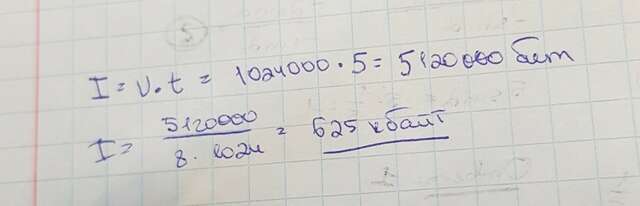 I = υ. t = 1024000 · 5 = 5120000 бит
I = 5120000 / 8 · 1024 = 625 кбайт